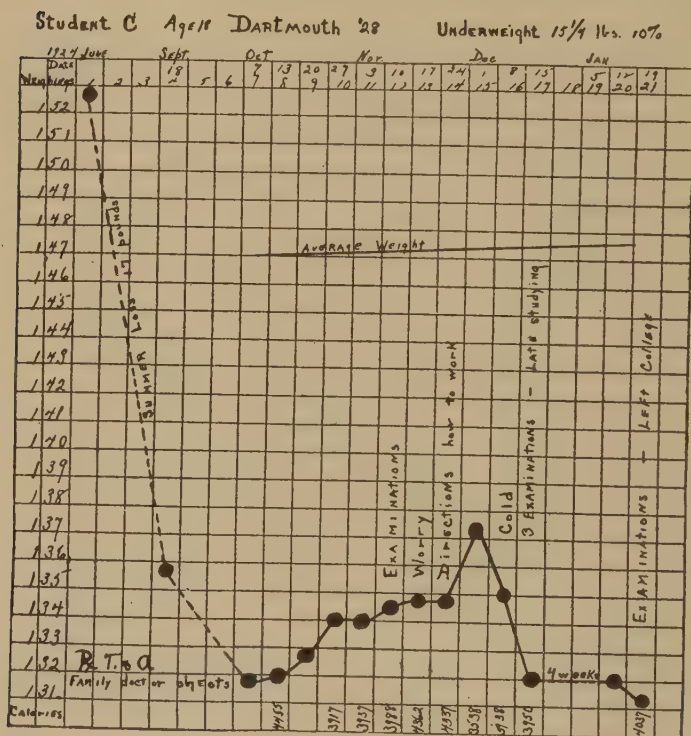 Student C Age 18 DARTMOUTH '28 UNDERWEIGHT 15 1/4 lbs. 10%
1924 JUNE Sept. Oct Nov. Dec JAN
DATE 18 7 13 20 27 3 10 17 24 1 8 15 5 12 19
Weighings 1 2 3 4 5 6 7 8 9 10 11 12 13 14 15 16 17 18 19 20 21
152
151
150
149
148
147 AVERAGE Weight
146
145
144
143
142
141
140
139
138
137
136
135
134
133
132
131
SUMMER Loss 17 pounds
EXAMINATIONS
Worry
Directions how to work
Cold
3 EXAMINATIONS - LATE studying
EXAMINATIONS - LEFT College
T. & A.
Family doctor objects
4 weeks
Calories 4455 3917 3937 3988 4262 4337 3538 3950 4037